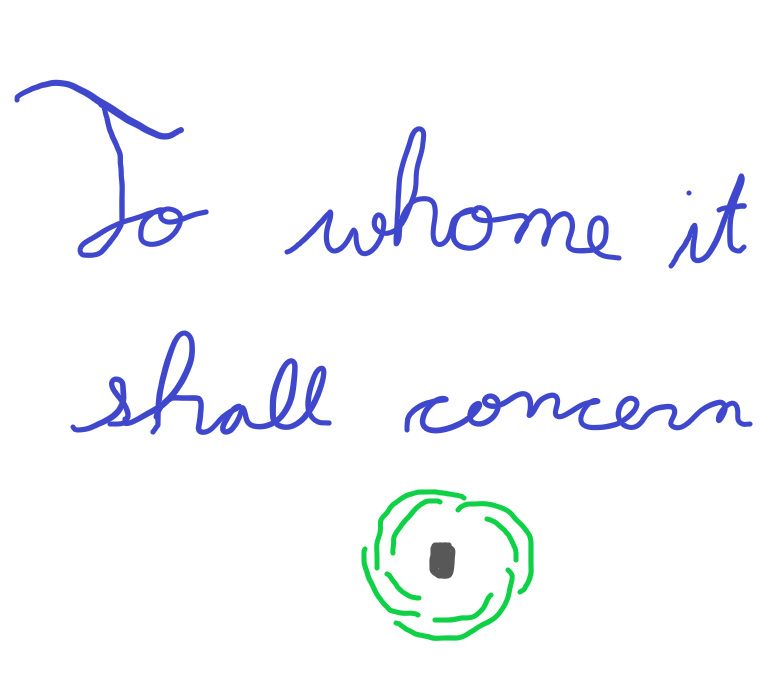 To whome it
shall concern